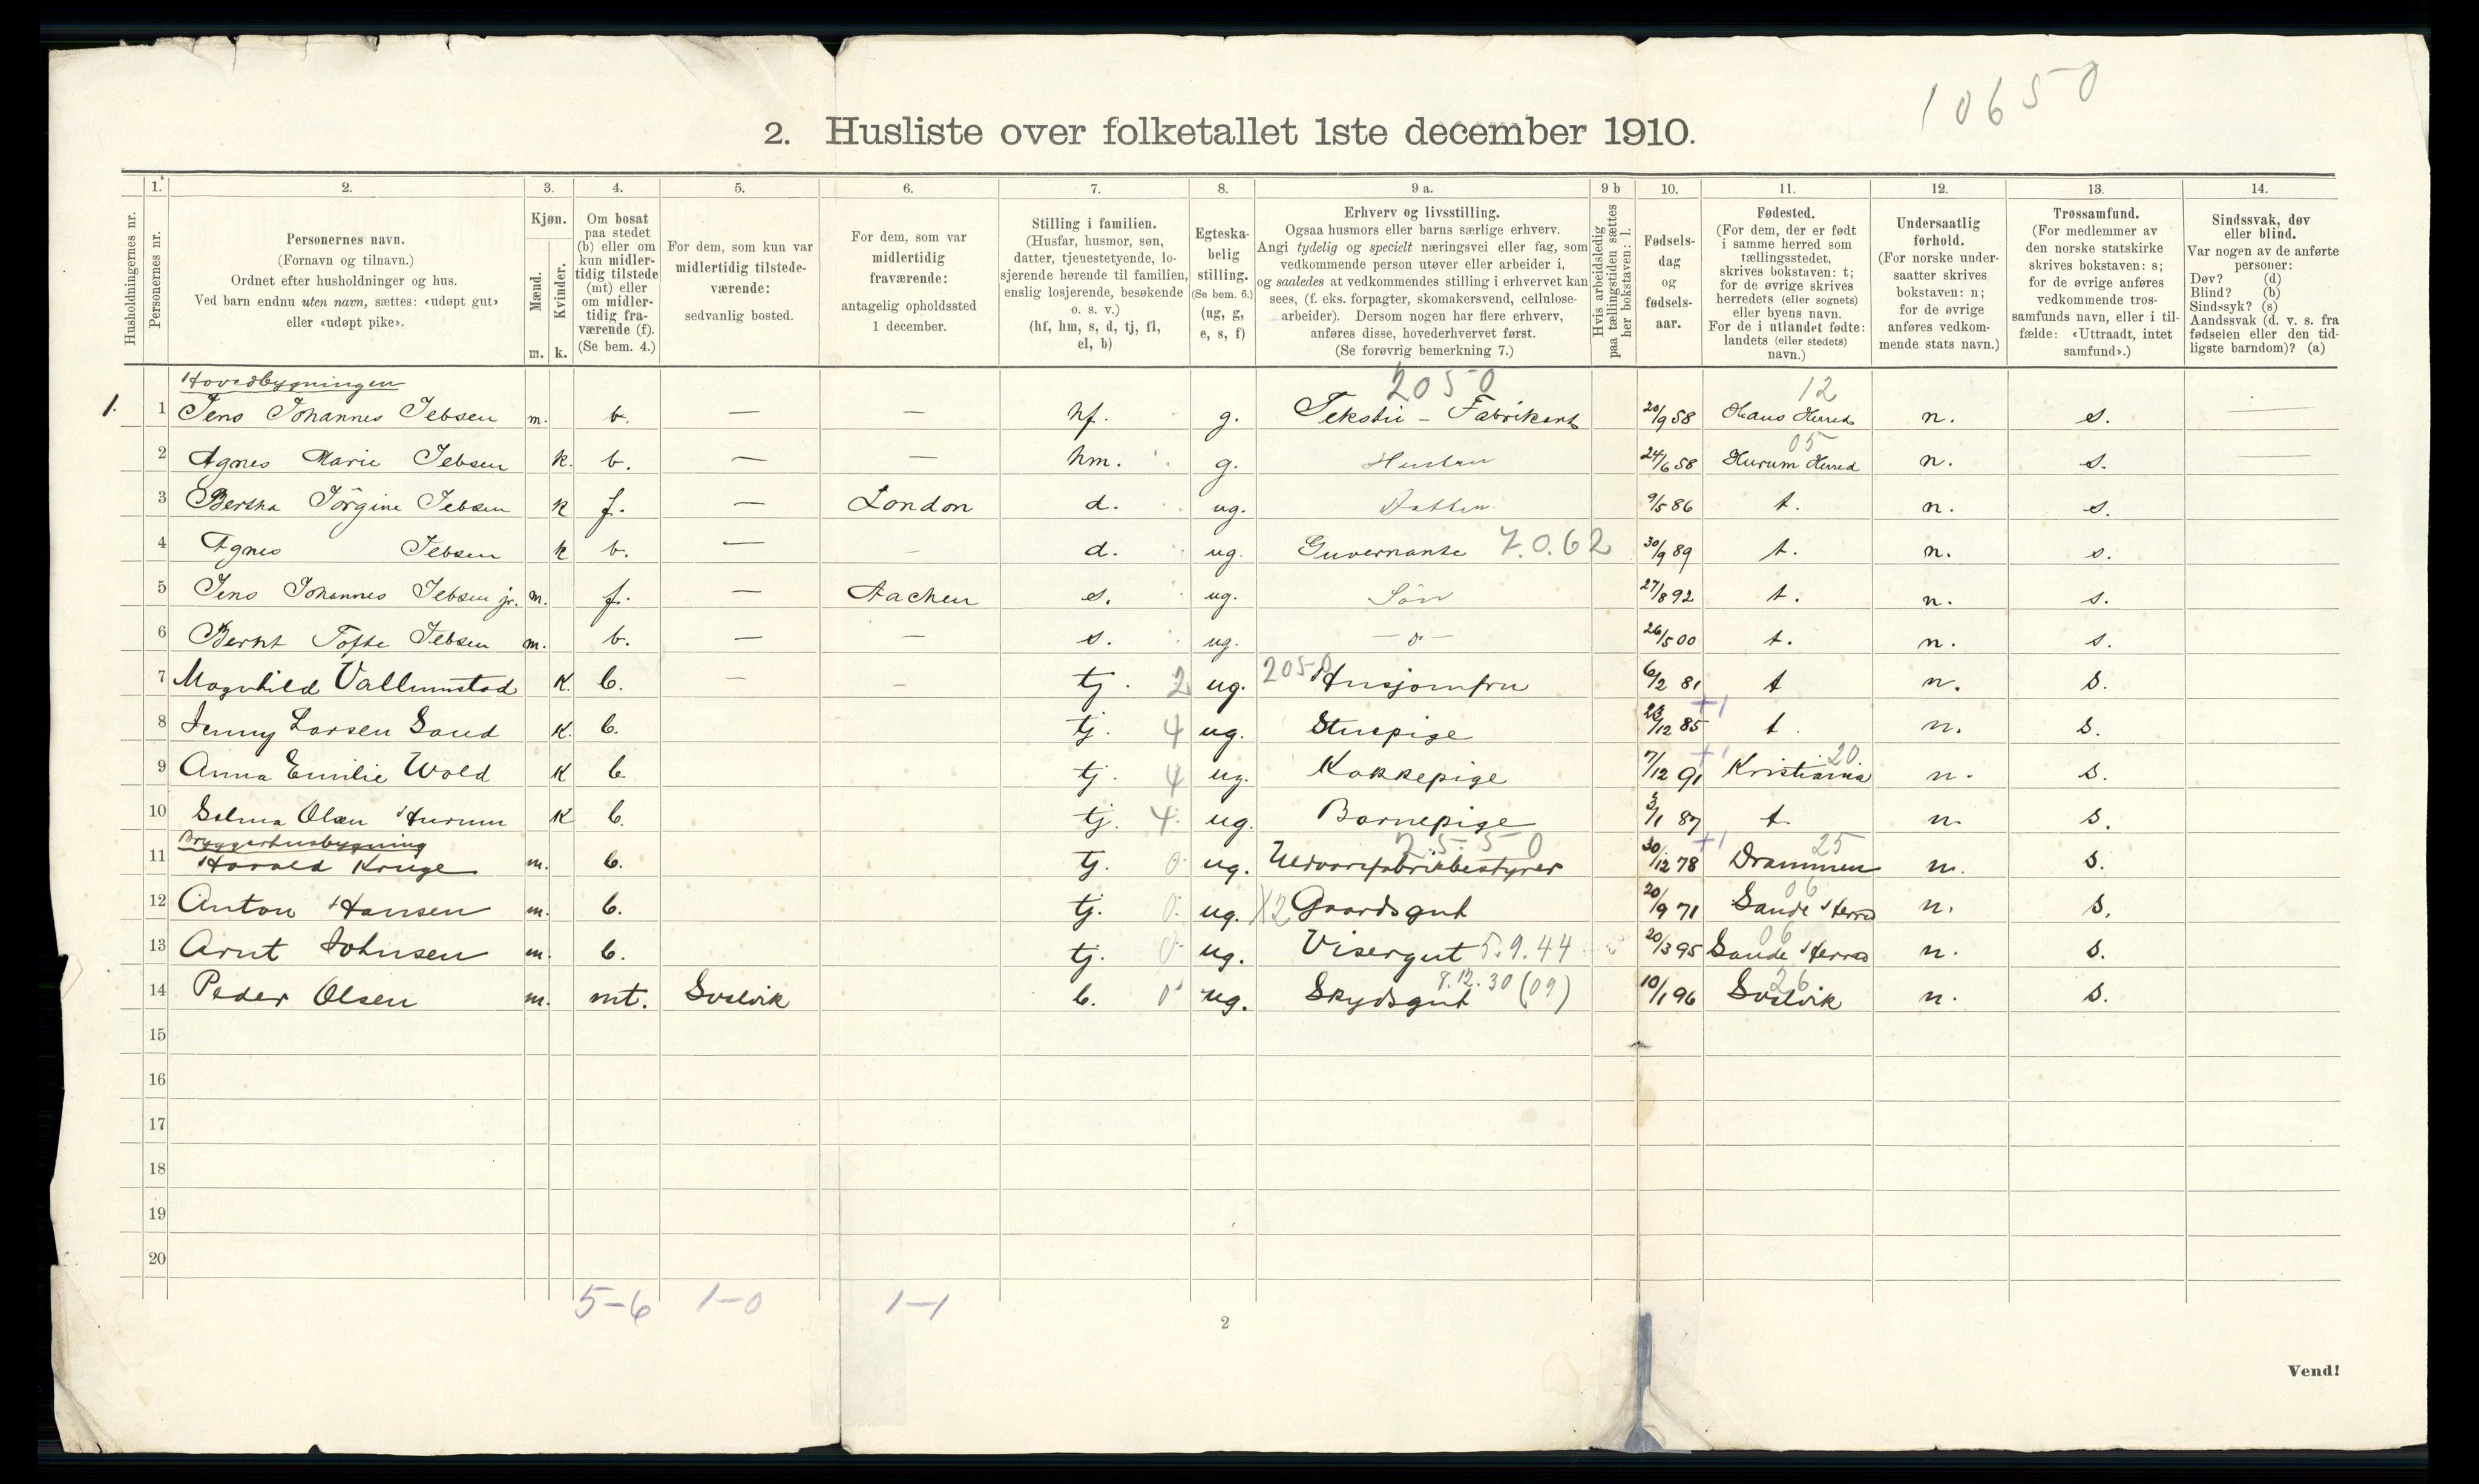 10650
2. Husliste over folketallet 1ste december 1910.
Husholdningernes nr.
1.
Personernes nr.
2.
Personernes navn.
(Fornavn og tilnavn.)
Ordnet efter husholdninger og hus.
Ved barn endnu uten navn, sættes: «udøpt gut»
eller «udøpt pike».
3.
Kjøn.
Mænd.
Kvinder.
m. k.
4.
Om bosat
paa stedet
(b) eller om
kun midler-
tidig tilstede
(mt) eller
om midler-
tidig fra-
værende (f).
(Se bem. 4.)
5.
For dem, som kun var
midlertidig tilstede-
værende:
sedvanlig bosted.
6.
For dem, som var
midlertidig
fraværende:
antagelig opholdssted
1 december.
7.
Stilling i familien.
(Husfar, husmor, søn,
datter, tjenestetyende, lo-
sjerende hørende til familien,
enslig losjerende, besøkende
o. s. v.)
(hf, hm, s, d, tj, fl,
el, b)
8.
Egteska-
belig
stilling.
(Se bem. 6.)
(ug, g,
e, s, f)
9 a.
Erhverv og livsstilling.
Ogsaa husmors eller barns særlige erhverv.
Angi tydelig og specielt næringsvei eller fag, som
vedkommende person utøver eller arbeider i,
og saaledes at vedkommendes stilling i erhvervet kan
sees, (f. eks. forpagter, skomakersvend, cellulose-
arbeider). Dersom nogen har flere erhverv,
anføres disse, hovederhvervet først.
(Se forøvrig bemerkning 7.)
9 b
Hvis arbeidsledig
paa tællingstiden sættes
her bokstaven: l.
10.
Fødsels-
dag
og
fødsels-
aar.
11.
Fødested.
(For dem, der er født
i samme herred som
tællingsstedet,
skrives bokstaven: t;
for de øvrige skrives
herredets (eller sognets)
eller byens navn.
For de i utlandet fødte:
landets (eller stedets)
navn.)
12.
Undersaatlig
forhold.
(For norske under-
saatter skrives
bokstaven: n;
for de øvrige
anføres vedkom-
mende stats navn.)
13.
Trossamfund.
(For medlemmer av
den norske statskirke
skrives bokstaven: s;
for de øvrige anføres
vedkommende tros-
samfunds navn, eller i til-
fælde: «Uttraadt, intet
samfund».)
14.
Sindssvak, døv
eller blind.
Var nogen av de anførte
personer:
Døv? (d)
Blind? (b)
Sindssyk? (s)
Aandssvak (d. v. s. fra
fødselen eller den tid-
ligste barndom)? (a)
Hovedbygningen 2050 12
1. 1 Jens Johannes Jebsen m. b. — — hf. g. Tekstil - Fabrikant 20/9 58 Haus Herred n. s. —
05
2 Agnes Marie Jebsen k. b. — — hm. g. Hustru 24/6 58 Hurum Herred n. s. —
3 Bertha Jörgine Jebsen k f. — London d. ug. Datter 9/5 86 t. n. s.
4 Agnes Jebsen k b. — - d. ug. Guvernante 7.0.62 30/9 89 t. n. s.
5 Jens Johannes Jebsen jr. m. f. — Aachen s. ug. Sön 27/8 92 t. n. s.
6 Bernt Tofte Jebsen m. b. — — s. ug. — " — 26/5 00 t. n. s.
7 Magnhild Vallumstad K. b. - - tj. 2 ug. 2050 Husjomfru 6/2 81 t n. s.
8 Jenny Larsen Sand K. b. tj. 4 ug. Stuepige 23/12 85 +1 t. n. s.
20
9 Anna Emilie Wold K b. tj. 4 ug. Kokkepige 7/12 91 +1 Kristiania n. s.
10 Selma Olsen Hurum K b. tj. 4 ug. Barnepige 3/1 87 t. n. s.
Bryggerhusbygning 2.5.50 25
11 Harald Kruge m. b. tj. 0 ug. Uldvarefabrikbestyrer 30/12 78 +1 Drammen n. s.
06
12 Anton Hansen m. b. tj. 0. ug. X2 Gaardsgut 20/9 71 Sande Herred n. s.
06
13 Arnt Johnsen m. b. tj. 0 ug. Visergut 5.9.44 20/3 95 Sande Herred n. s.
8.12.30 (09) 26
14 Peder Olsen m. mt. Svelvik b. 0 ug. Skydsgut 10/1 96 Svelvik n. s.
15
16
17
18
19
20
5-6 1-0 1-1
2
Vend!